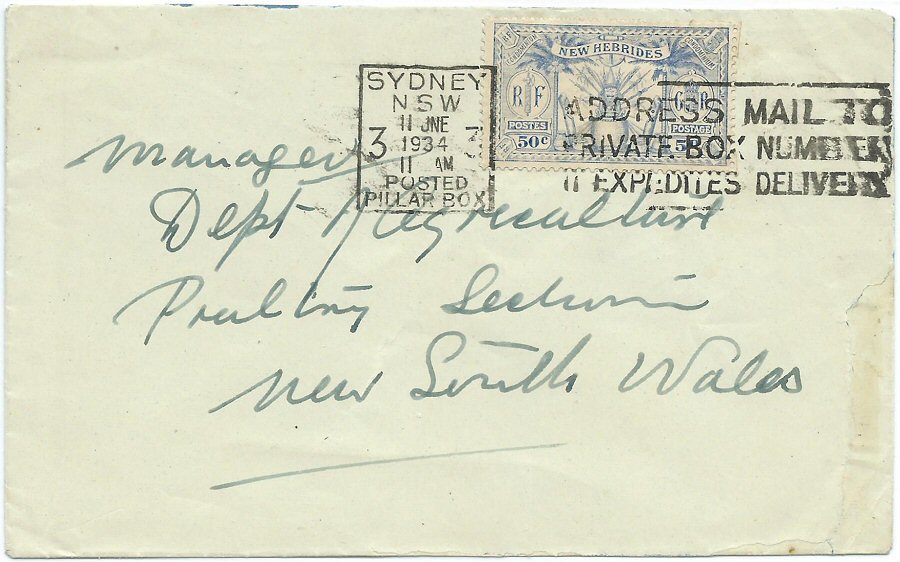 SYDNEY
NSW
11 JNE
3 1934 3
11 AM
POSTED
PILLAR BOX
CONDOMINIUM CONDOMINIUM
NEW HEBRIDES
R F G R
POSTES POSTAGE
50c 5D
ADDRESS MAIL TO
PRIVATE BOX NUMBER
IT EXPEDITES DELIVERY
Manager
Dept Agriculture
Poultry Section
New South Wales